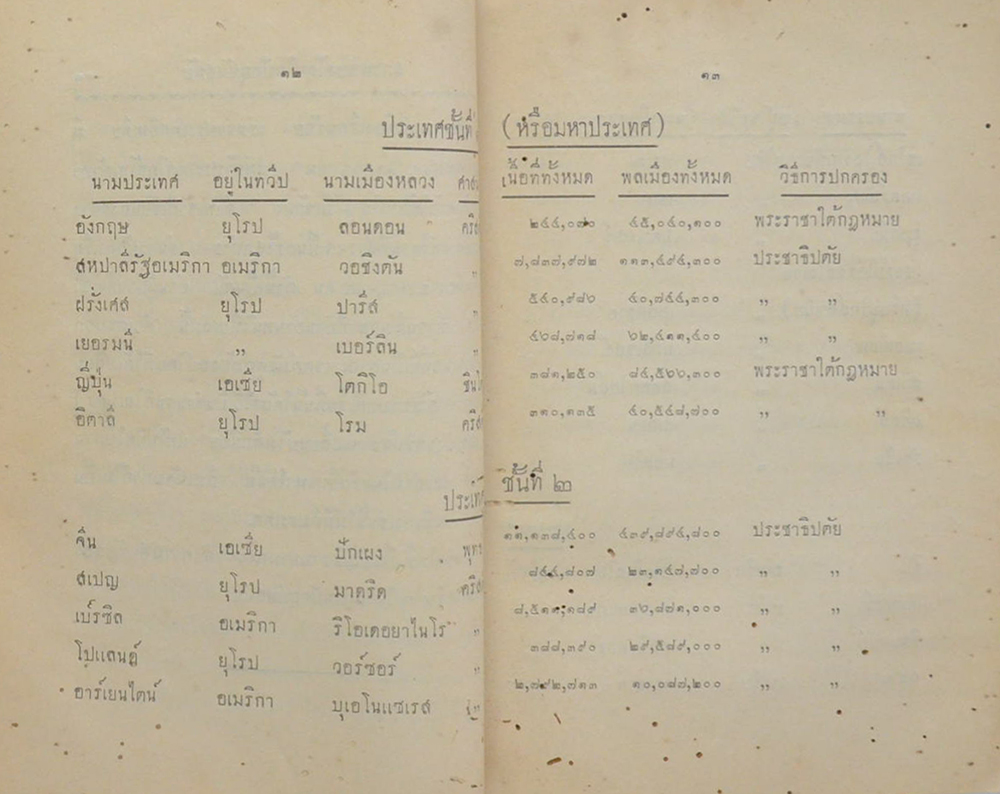 ๑๒
ประเทศชั้นที่
นามประเทศ อยู่ในทวีป นามเมืองหลวง
อังกฤษ ยุโรป ลอนดอน
สหปาลีรัฐอเมริกา อเมริกา วอชิงตัน
ฝรั่งเศส ยุโรป ปารีส
เยอรมนี ,, เบอร์ลิน
ญี่ปุ่น เอเซีย โตกิโอ
อิตาลี ยุโรป โรม
จีน เอเซีย ปักเผง
สเปญ ยุโรป มาดริด
เบร์ซิล อเมริกา ริโอเดอยาไนโร
โปแลนด์ ยุโรป วอร์ซอร์
อาร์เยนไตน์ อเมริกา บุเอโนแซเรส
๑๓
(หรือมหาประเทศ)
เนื้อที่ทั้งหมด พลเมืองทั้งหมด วิธีการปกครอง
๔๕,๐๔๐,๑๐๐ พระราชาใต้กฎหมาย
๗,๘๓๗,๙๗๒ ๑๑๓,๔๙๔,๓๐๐ ประชาธิปตัย
๕๔๐,๙๘๖ ๔๐,๗๔๔,๓๐๐ ,, ,,
๔๖๘,๗๑๘ ๖๒,๔๑๑,๔๐๐ ,, ,,
๓๘๑,๒๕๐ ๘๔,๕๖๖,๓๐๐ พระราชาใต้กฎหมาย
๓๑๐,๑๓๕ ๔๐,๕๔๘,๗๐๐ ,, ,,
ชั้นที่ ๒
๑๑,๑๓๘,๔๐๐ ๔๓๙,๘๙๔,๘๐๐ ประชาธิปตัย
๒๓,๑๔๗,๗๐๐ ,, ,,
๘,๕๑๑,๑๘๙ ๓๖,๘๗๑,๐๐๐ ,, ,,
๓๘๘,๓๙๐ ๒๙,๕๘๙,๐๐๐ ,, ,,
๒,๗๙๒,๗๑๓ ๑๐,๐๘๗,๒๐๐ ,, ,,